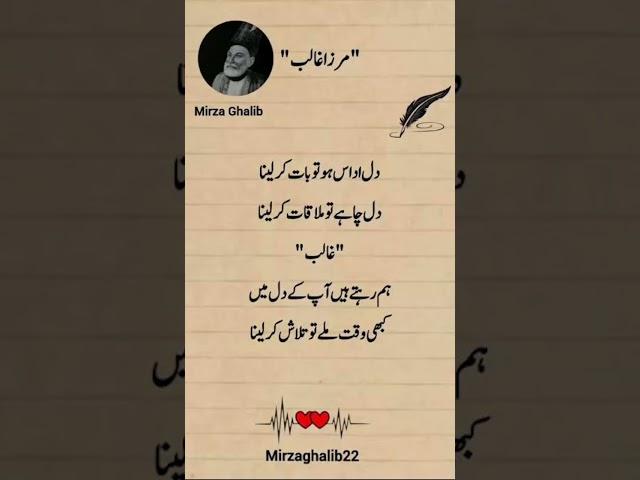 "مرزا غالب"
Mirza Ghalib
دل اداس ہو تو بات کر لینا
دل چاہے تو ملاقات کر لینا
"غالب"
ہم رہتے ہیں آپ کے دل میں
کبھی وقت ملے تو تلاش کر لینا
Mirzaghalib22